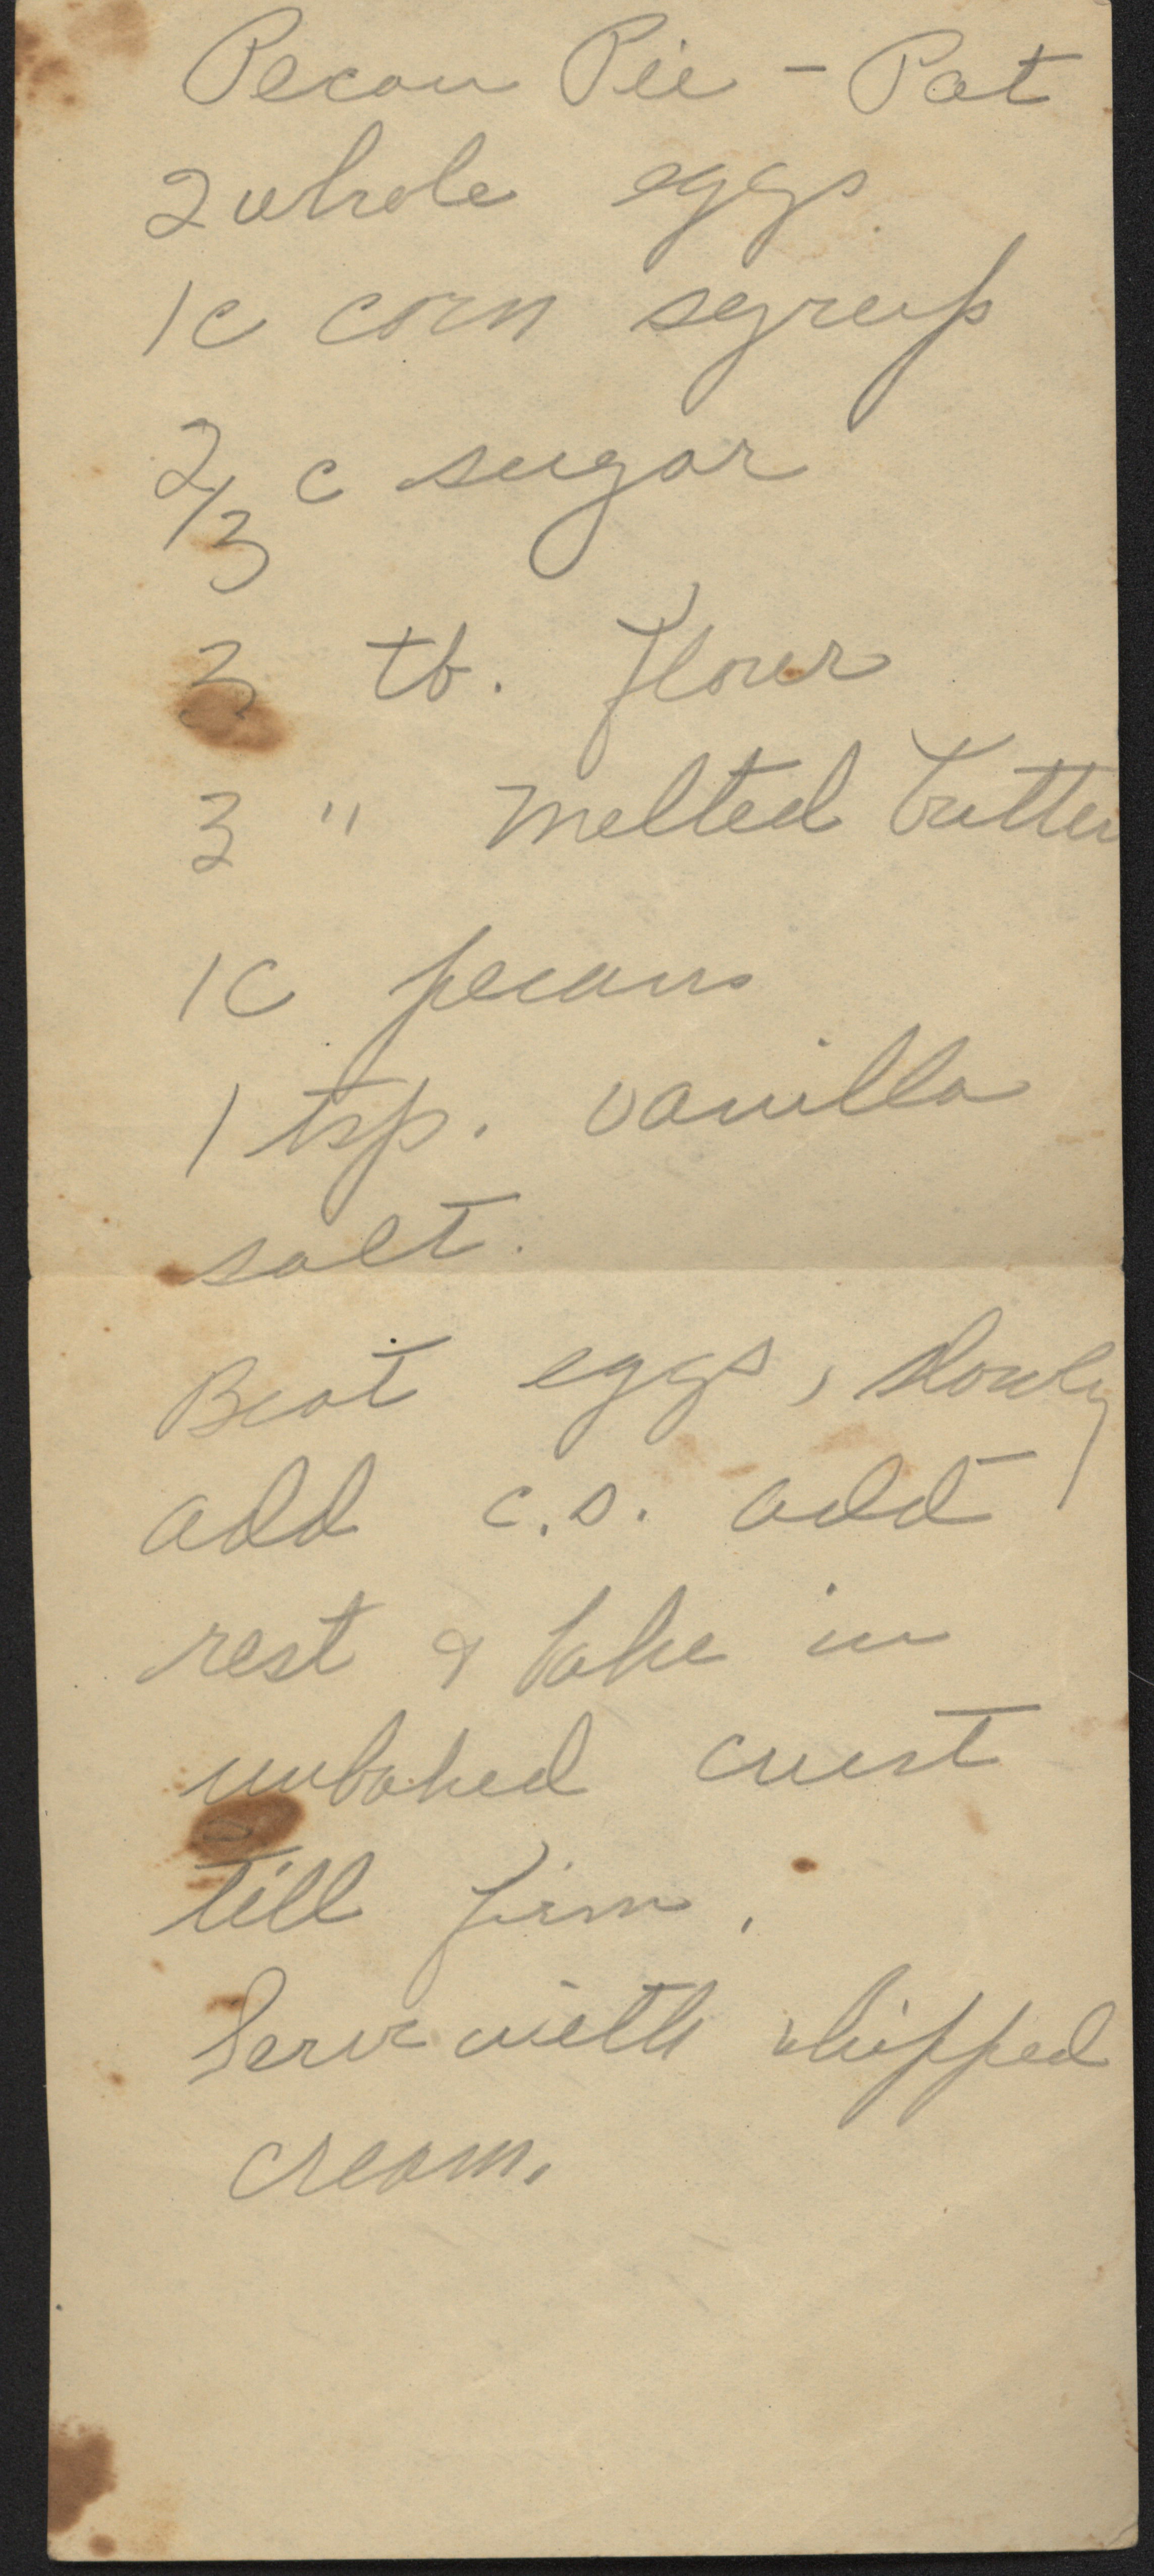 Pecan Pie - Pat
2 whole eggs.
1c corn syrup
2/3 c sugar
3 tb. flour
3 " melted butter
1c pecans
1 tsp. vanilla
salt.
Beat eggs, slowly
add c.s. add
rest & bake in
unbaked crust
till firm.
Serve with whipped
cream.